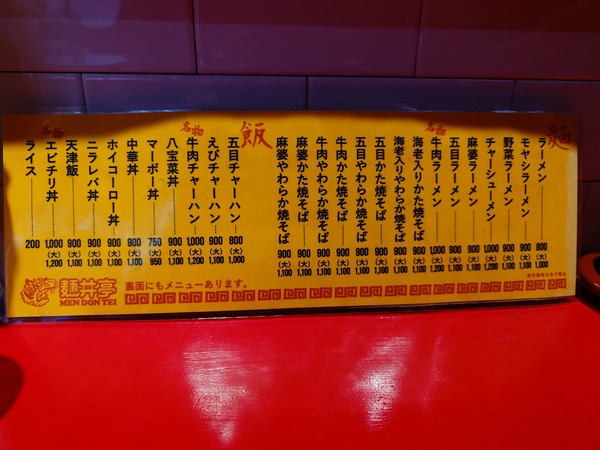 麺
ラーメン 800 (大) 1,000
モヤシラーメン 900 (大) 1,100
野菜ラーメン 900 (大) 1,100
チャーシューメン 1,000 (大) 1,200
麻婆ラーメン 900 (大) 1,100
五目ラーメン 900 (大) 1,100
名物 牛肉ラーメン 1,000 (大) 1,200
海老入りかた焼そば 900 (大) 1,100
海老入りやわらか焼そば 900 (大) 1,100
五目かた焼そば 900 (大) 1,100
五目やわらか焼そば 900 (大) 1,100
牛肉かた焼そば 900 (大) 1,100
牛肉やわらか焼そば 900 (大) 1,100
麻婆かた焼そば 900 (大) 1,100
麻婆やわらか焼そば 900 (大) 1,100
飯
五目チャーハン 800 (大) 1,000
えびチャーハン 900 (大) 1,100
名物 牛肉チャーハン 1,000 (大) 1,200
八宝菜丼 900 (大) 1,100
マーボー丼 750 (大) 950
中華丼 900 (大) 1,100
ホイコーロー丼 900 (大) 1,100
ニラレバ丼 900 (大) 1,100
天津飯 900 (大) 1,100
名物 エビチリ丼 1,000 (大) 1,200
ライス 200
麺丼亭
MEN DON TEI
裏面にもメニューあります。